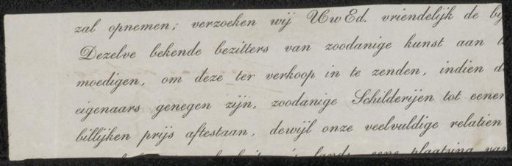 zal opnemen; verzoeken wij UwEd. vriendelijk de bij
Dezelve bekende bezitters van zoodanige kunst aan
moedigen, om deze ter verkoop in te zenden, indien d
eigenaars genegen zijn, zoodanige Schilderijen tot eenen
billijken prijs aftestaan, dewijl onze veelvuldige relatien
eene plaatsing van